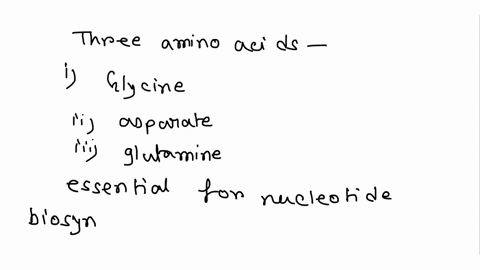 Three amino acids —
i) Glycine
ii) asparate
iii) glutamine
essential for nucleotide
biosyn